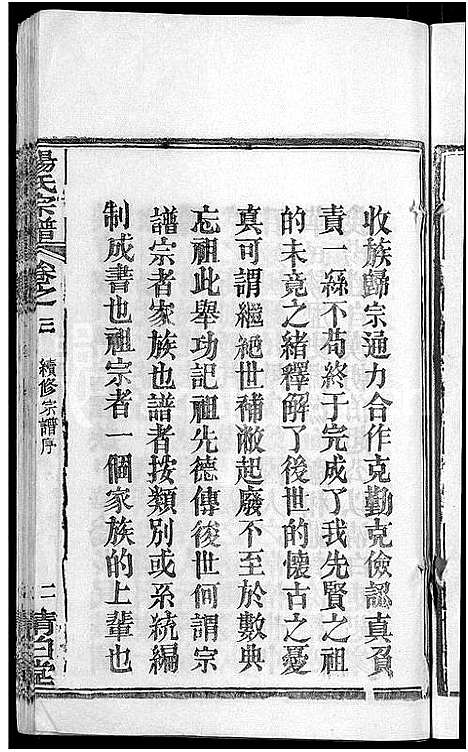 收族歸宗通力合作克勤克儉認真負
責一絲不苟終于完成了我先賢之祖
的未竟之緒釋解了後世的懷古之憂
真可謂繼絕世補敝起廢不至於數典
忘祖此舉功記祖先德傳後世何謂宗
譜宗者家族也譜者按類別或系統編
制成書也祖宗者一個家族的上輩也
楊氏宗譜 卷之三 續修宗譜序 二 清白堂